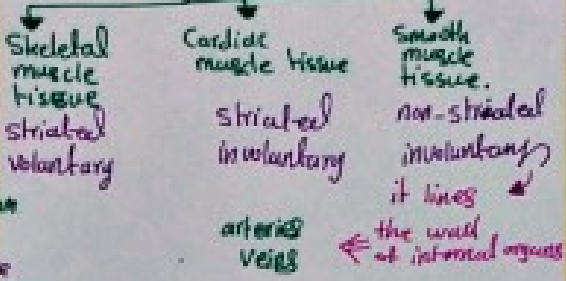 Skeletal
muscle
tissue
striated
voluntary
Cardiac
muscle tissue
striated
involuntary
Smooth
muscle
tissue.
non-striated
involuntary
it lines
the wall
of internal organs
arteries
veins